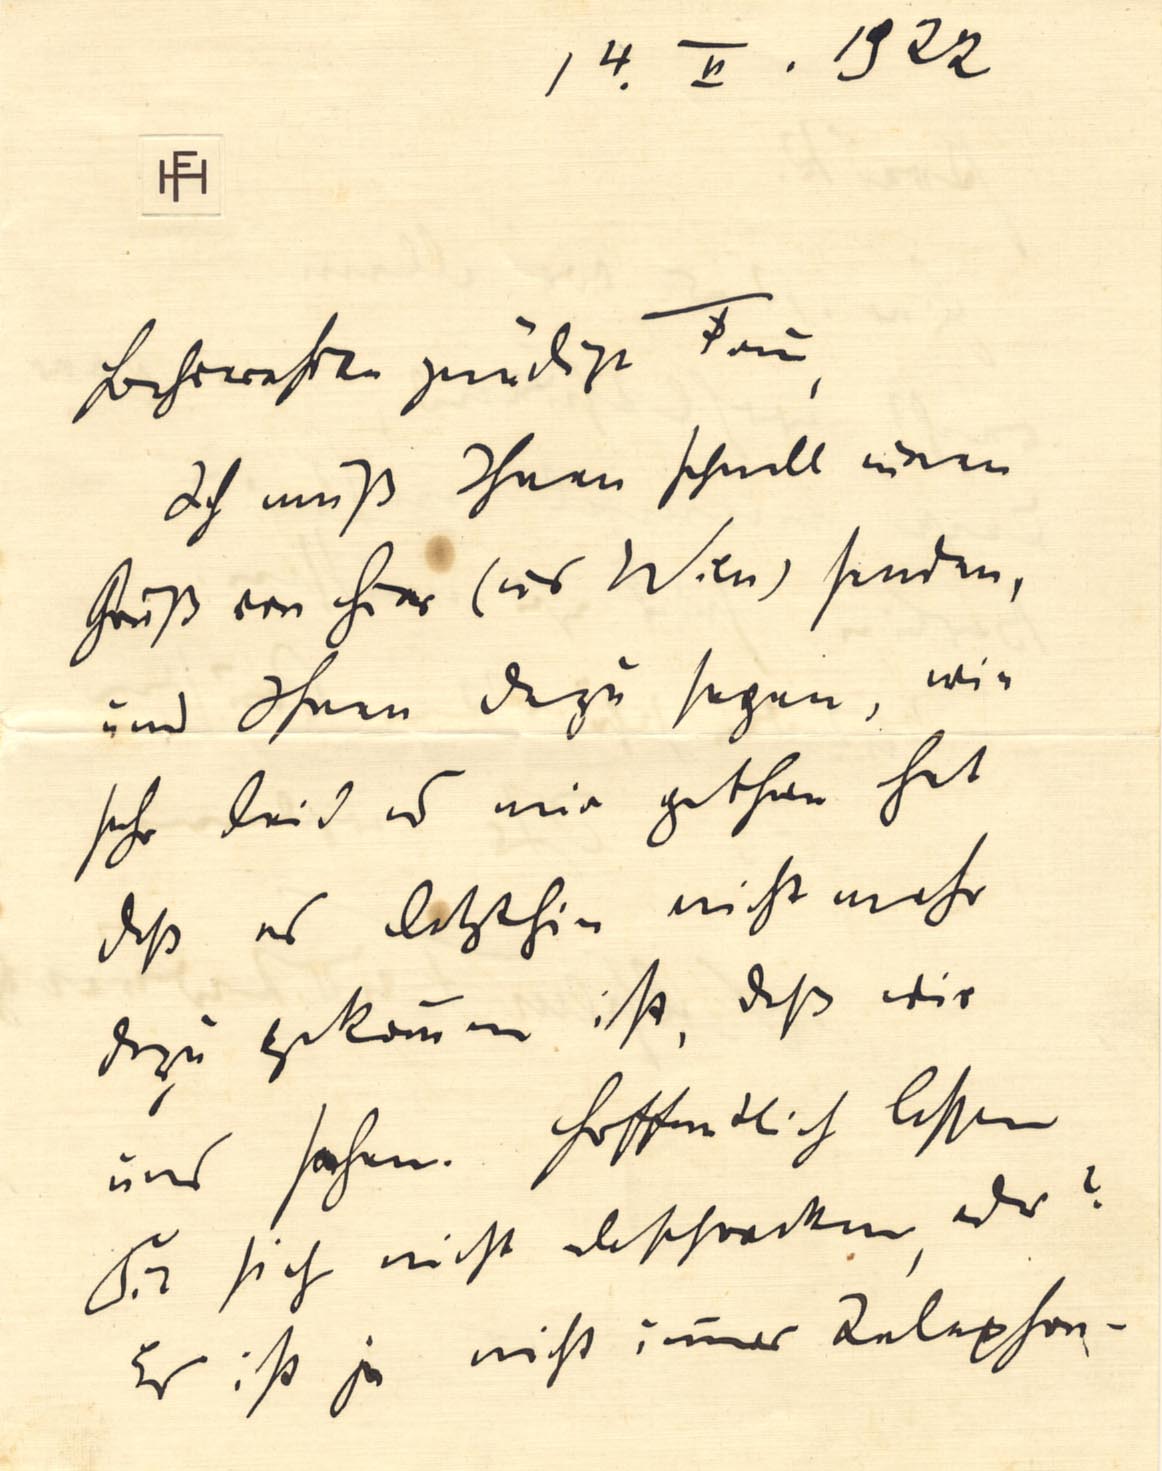 14. II. 1922
FH
Hochverehrte gnädige Frau,
Ich muß Ihnen schnell einen
Gruß von hier (aus Wien) senden,
und Ihnen dazu sagen, wie
sehr leid es mir gethan hat
daß es letzthin nicht mehr
dazu gekom̅en ist, daß wir
uns sahen. Hoffentlich lassen
Sie sich nicht abschrecken, oder?
Es ist ja nicht im̅er Telephon-